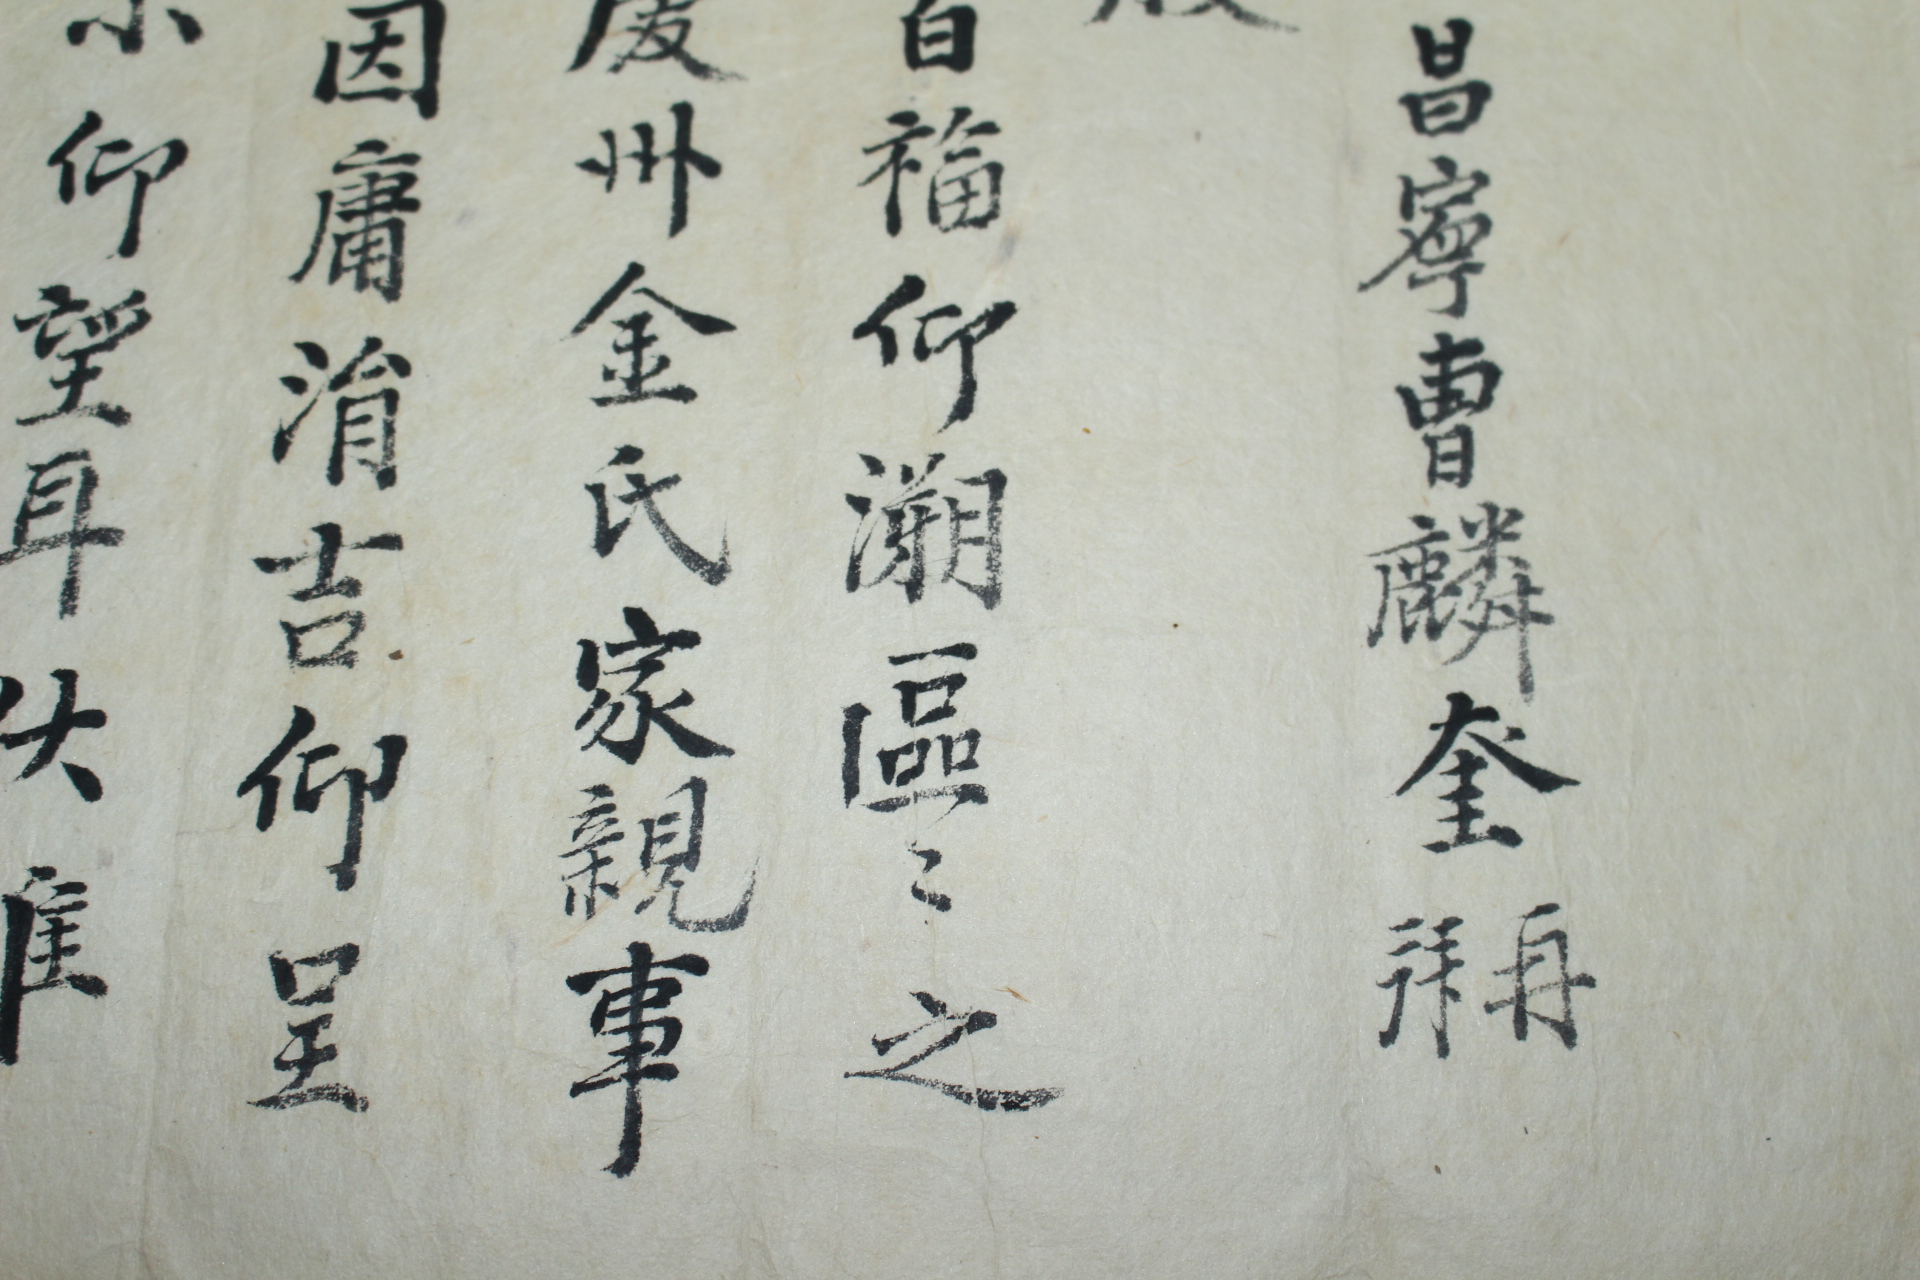 昌寧曺麟奎 再拜
百福仰溯區〻之
慶州金氏家親事
因庸涓吉仰呈
示仰望耳伏惟